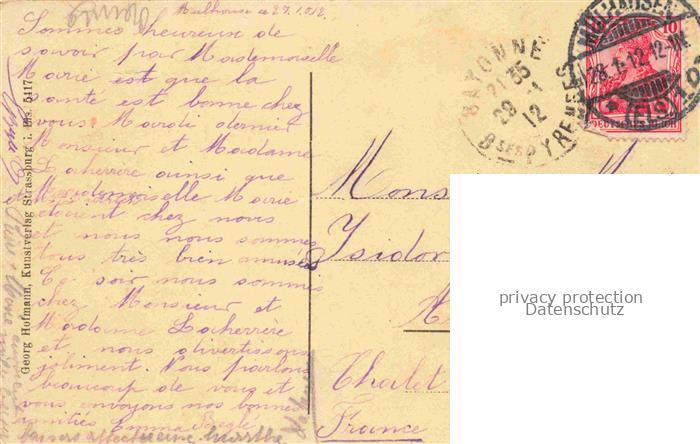 Mulhouse ce 27.1.1912.
Sommes heureuse de
savoir par Mademoiselle
Marie est que la
santé est bonne chez
vous Mardi dernier
Monsieur et Madame
Lacherrere ainsi que
Mademoiselle Marie
étaient chez nous
et nous nous sommes
tous très bien amusés
Ce soir nous sommes
chez Monsieur et
Madame Lacherrere
et nous divertissons
joliment. Nous parlons
beaucoup de vous et
vous envoyons nos bonnes
amitiés Emma
Georg Hofmann, Kunstverlag Strassburg i. Els. 5417
BAYONNE
21 35
28 - 1
12
BSES PYRENEES
MÜLHAUSEN
28.1.12.12-1N
(ELS)
10
DEUTSCHES REICH
Mons
Isidor
Chalet
France
privacy protection
Datenschutz